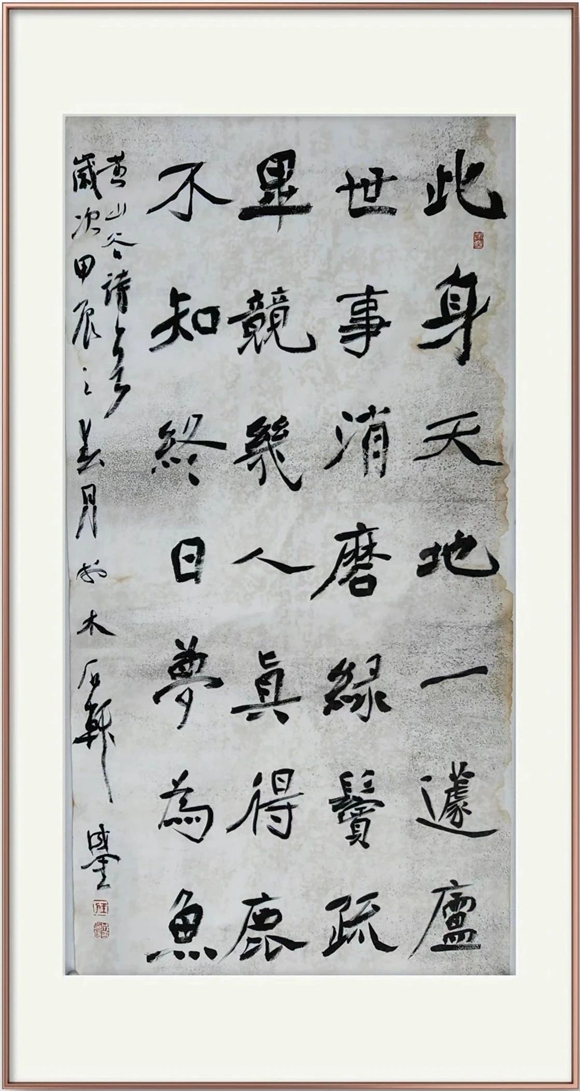 此身天地一蘧廬
世事消磨綠鬢疏
畢競幾人眞得鹿
不知終日夢為魚
黄山谷詩一首
歲次甲辰之春月於木石軒